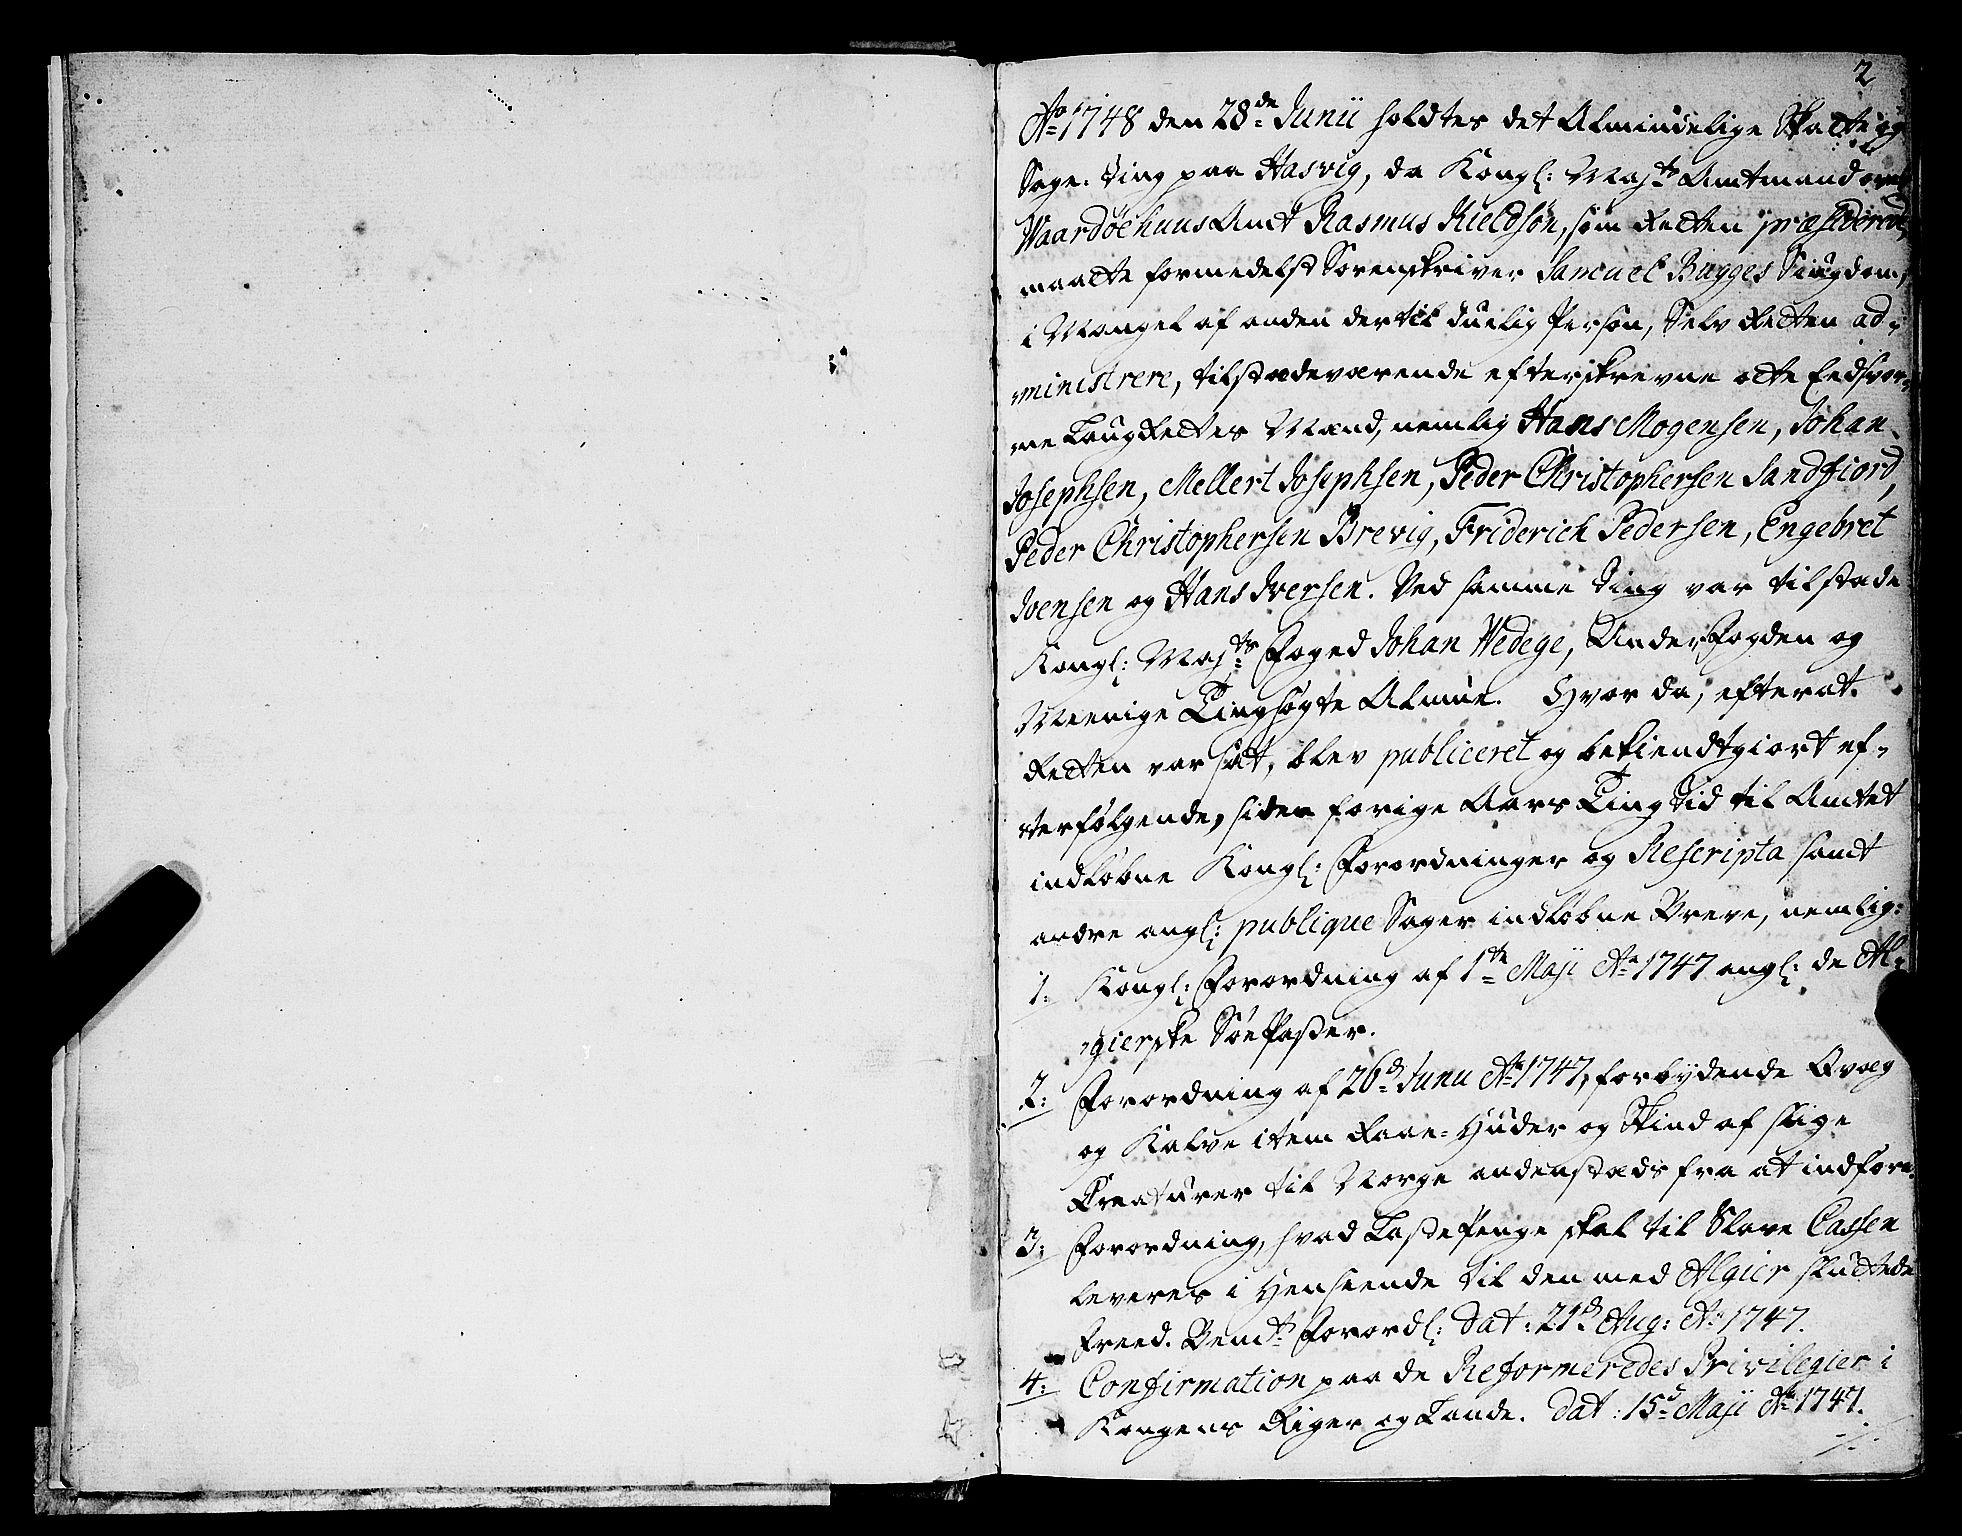 2
Ao 1748 den 28de Junii holdtes det Almindelige Skatte og
Sage-Ting paa Hasvig, da Kongl: Majts Amtmand over
Waardøehuus Amt Rasmus Kieldsøn, som Retten præsiderede,
maatte formedelst Sorenskriver Samuel Bugges Siugdom,
i Mangel af anden dertil duelig Persøn, Selv Retten ad-
ministrere, tilstædeværende efterskrevne otte Eedsvor-
ne LaugRettes Mænd, nemlig Hans Mogensen, Johan
Josephsen, Mellert Josephsen, Peder Christophersen Sandfiord,
Peder Christophersen Brevig, Friderich Pedersen, Engebret
Joensen og Hans Iversen. Ved samme Ting var tilstæde
Kongl: Majts Foged Johan Wedege, UnderFogden og
Meenige Tingsøgte Almue. Hvor da, efterat
Retten var sat, blev publiceret og bekiendtgiort ef-
terfølgende, siden forige Aars Ting Tid til Amtet
indløbne Kongl: Forordninger og Rescripta samt
andre angl: publique Sager indløbne Breve, nemlig:
1: Kongl: Forordning af 1te Maji Ao 1747 angl: de Al-
gierske Søe Passer.
2: Forordning af 26d Junii Ao 1747, forbydende Qvæg
og Kalve item Raae-Huder og Skind af slige
Creaturer til Norge andenstæds fra at indføre.
3: Forordning, hvad Laste Penge skal til Slave Cassen
leveres i Henseende til den med Algier sluttede
Freed. Bemte Forordl: Dat: 21d Aug: Ao 1747.
4: Confirmation paa de Reformeredes Privilegier i
Kongens Riger og Lande. Dat: 15d Maji Ao 1747.